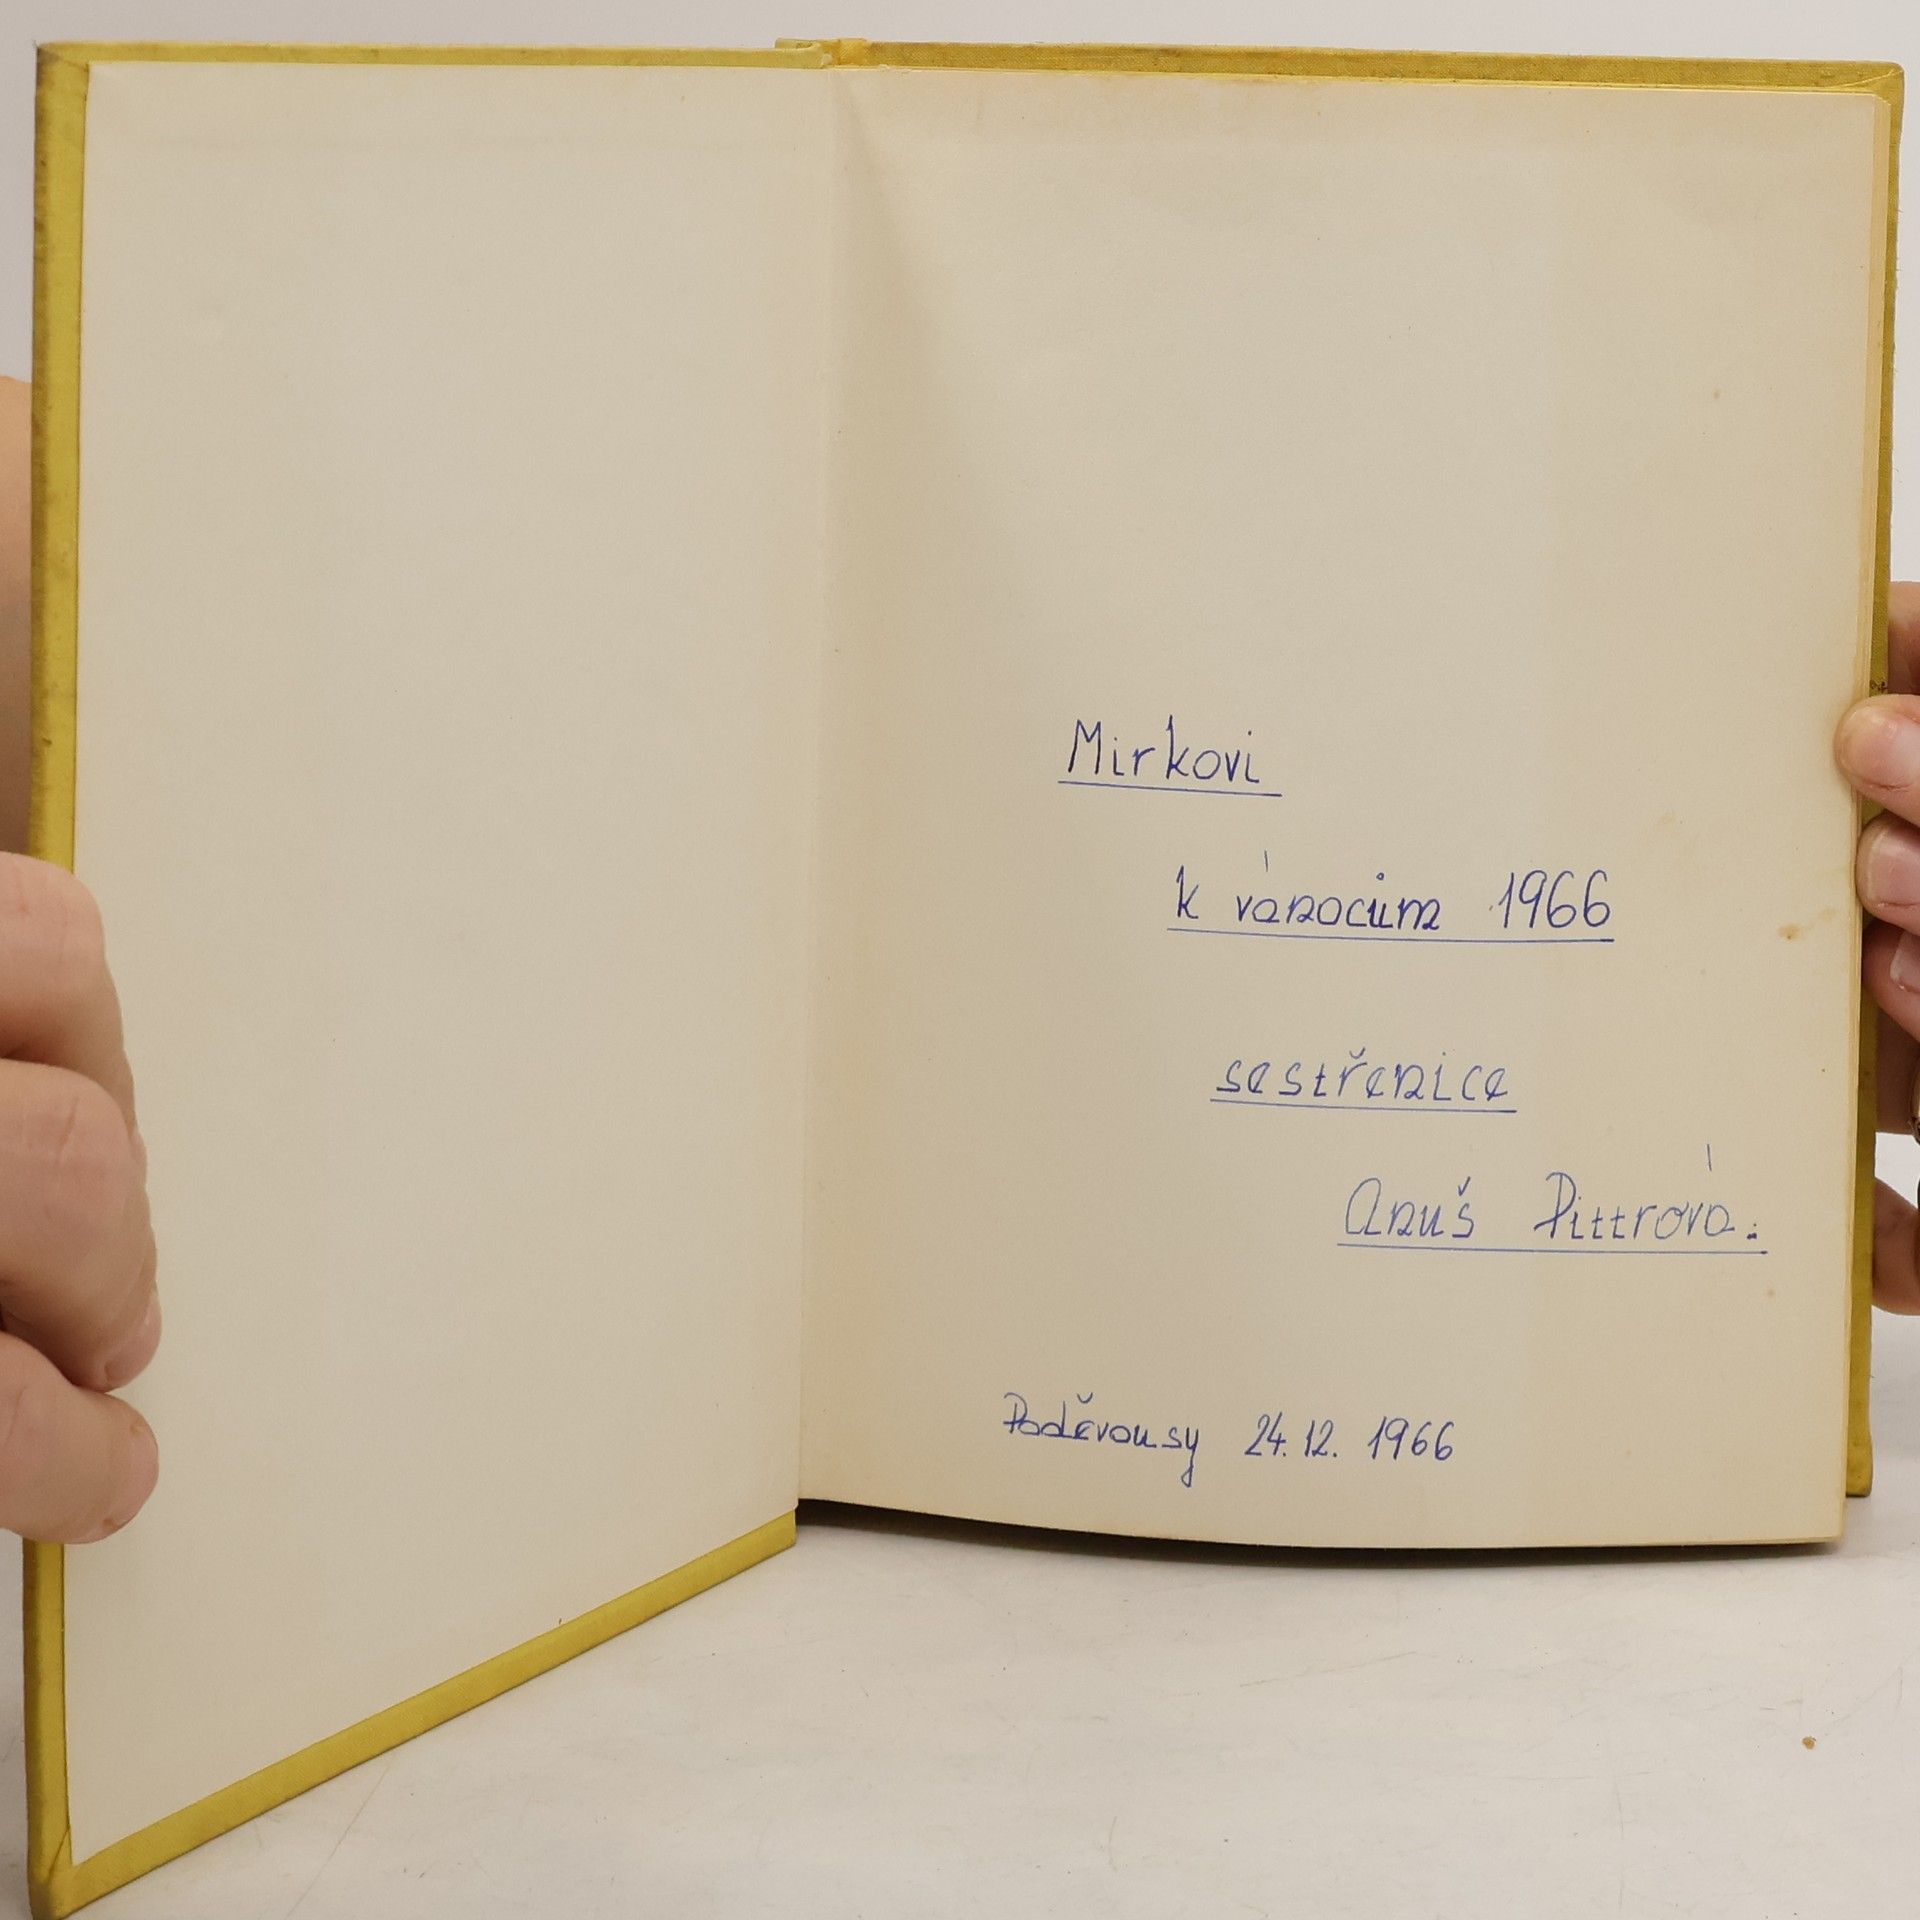 Mirkovi
k vánocům 1966
sestřenice
Anuš Pittrová.
Poděvousy 24. 12. 1966